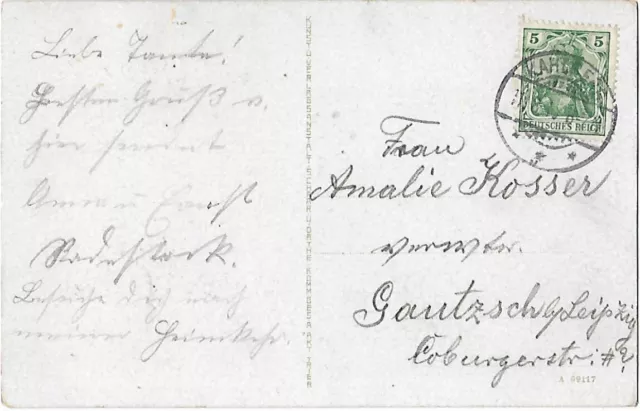 Liebe Tante!
Besten Gruß v.
hier sendet
Anna u Ernst
Radestock.
Besuche dich nach
meiner Heimkehr.
5 5
DEUTSCHES REICH
Frau
Amalie Kosser
verwter.
Gautzsch b/Leipzig
Coburgerstr:
A 69117